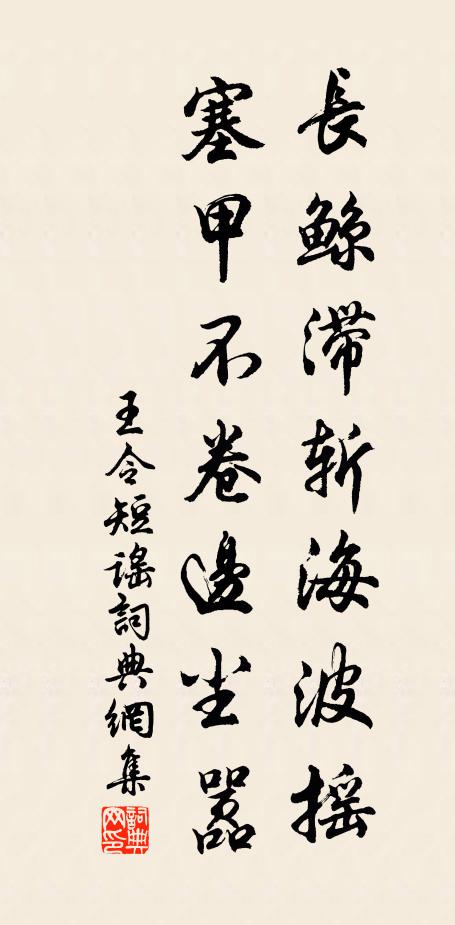 長鯨滯斬海波摇
塞甲不卷邊尘嚣
王令短謡詞典網集
詞典网印